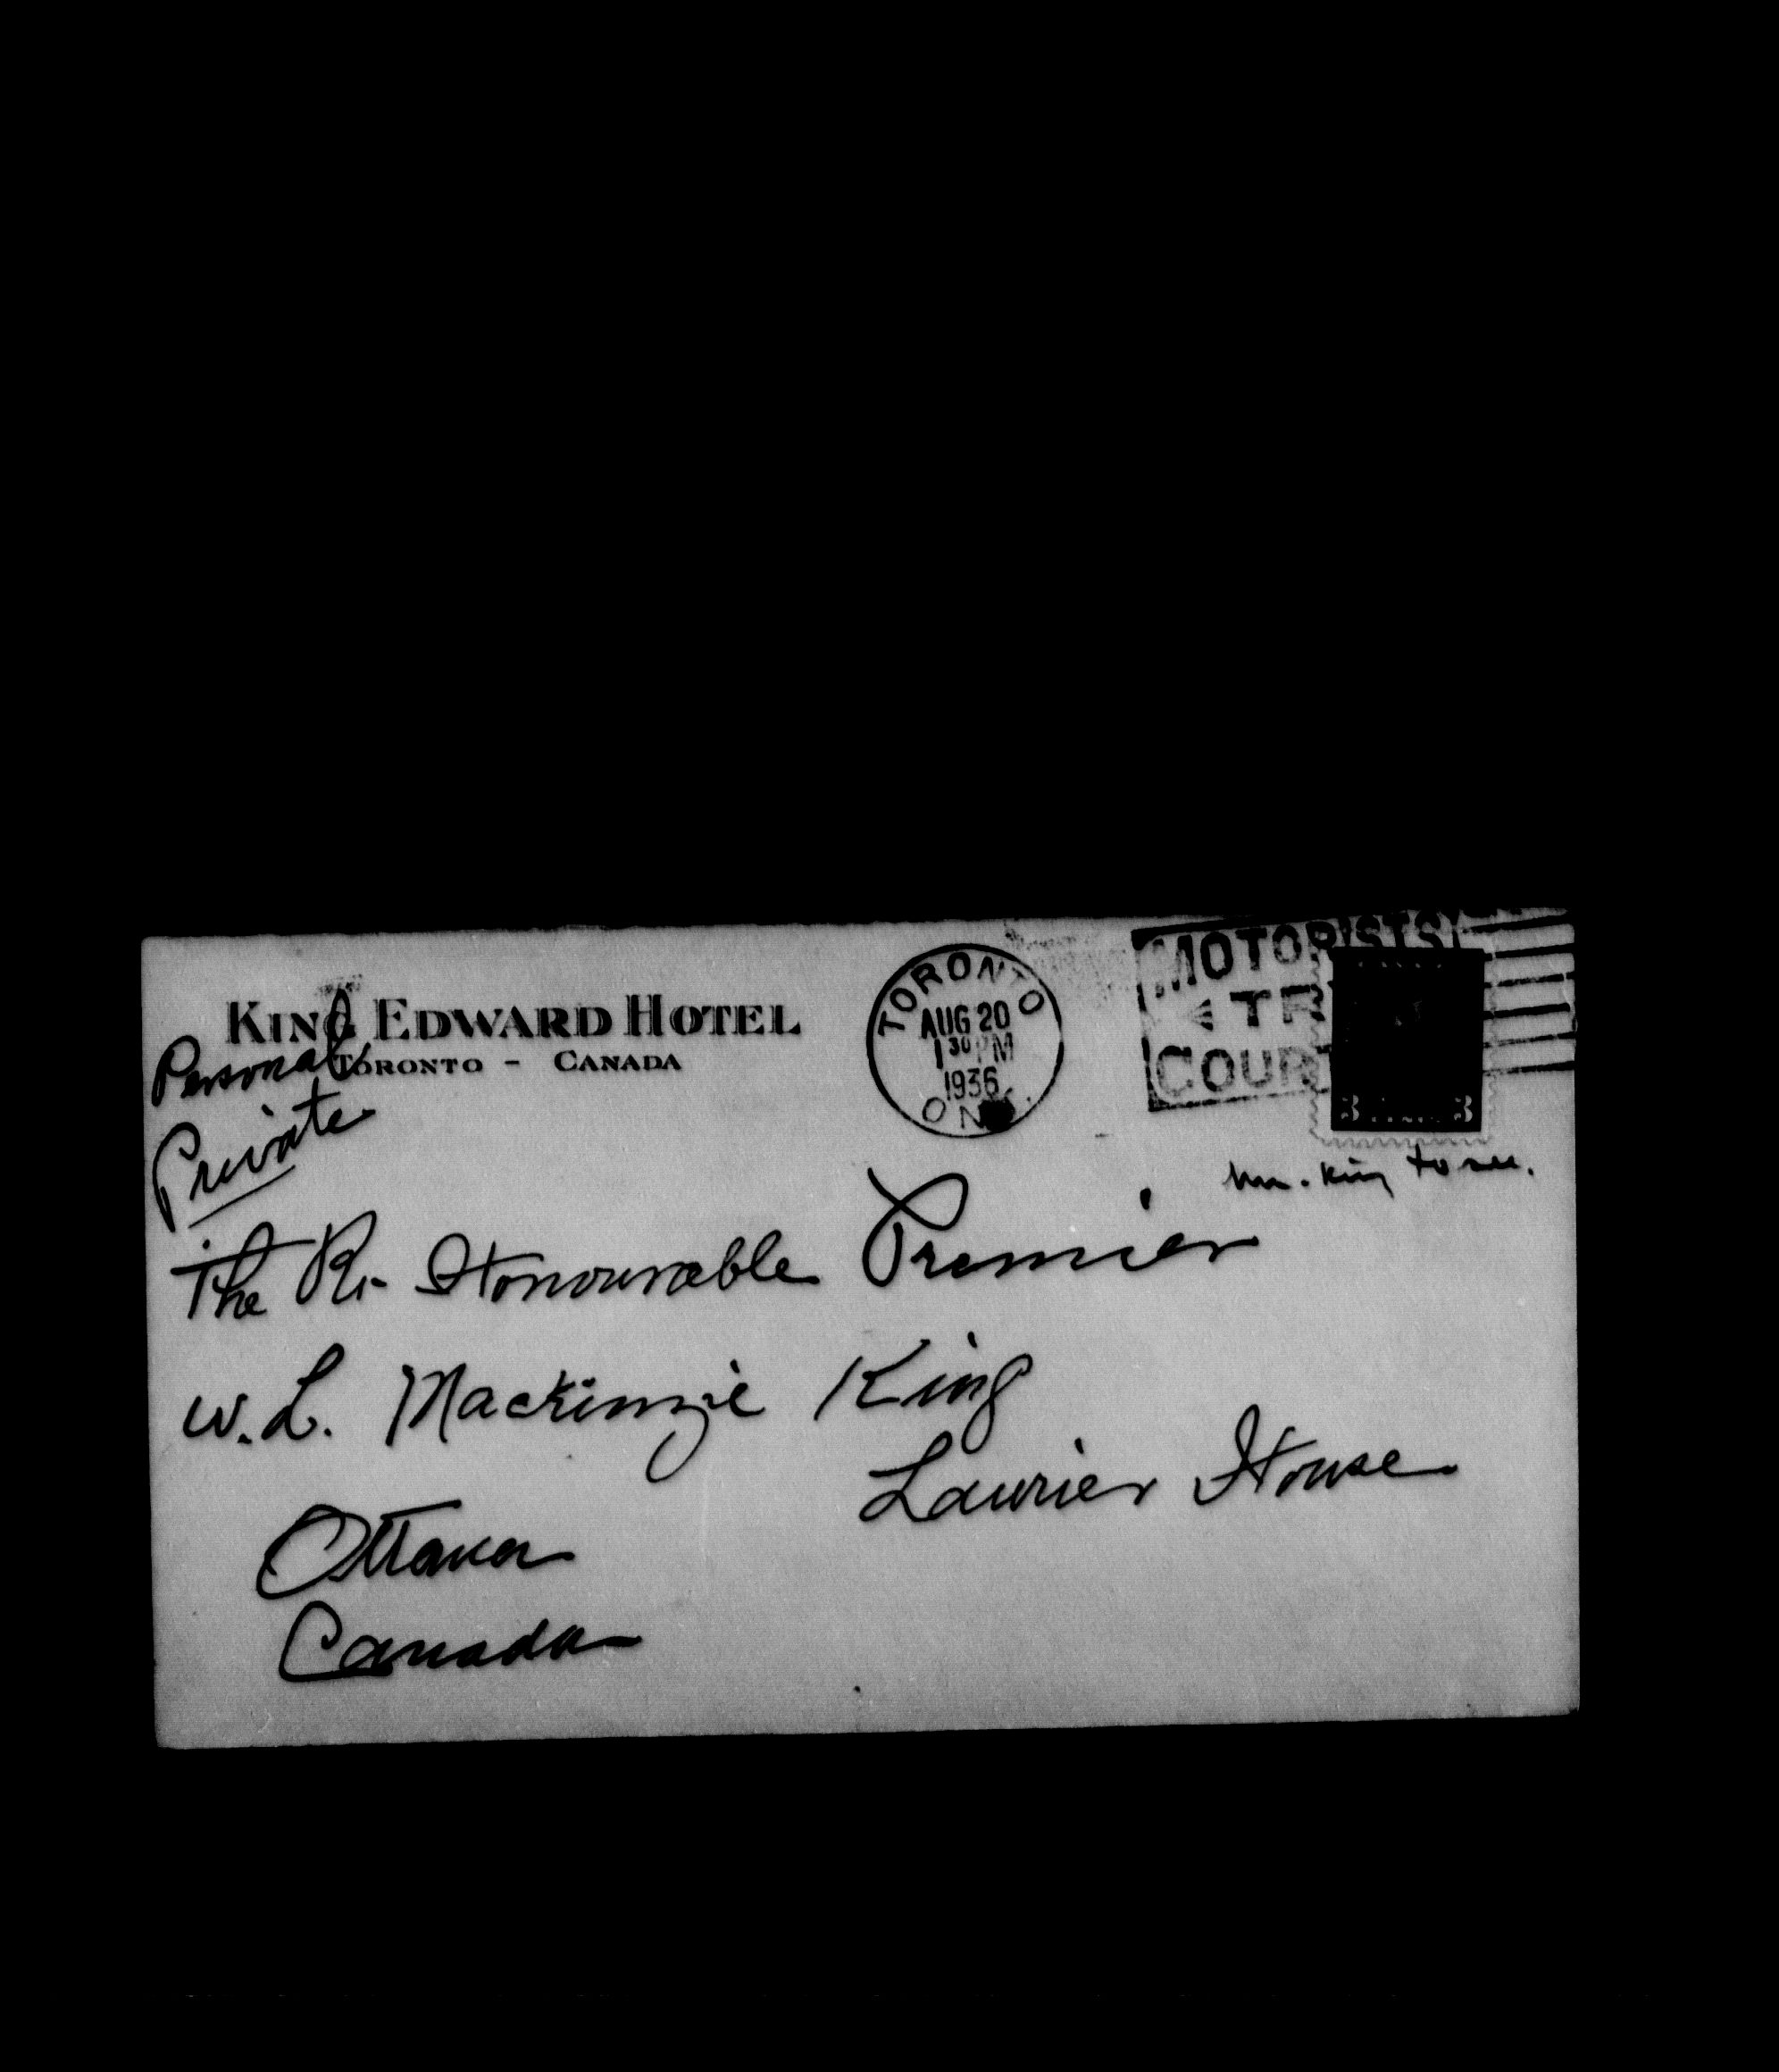 KING EDWARD HOTEL
TORONTO - CANADA
Personal
Private
TORONTO
AUG 20
1 30 PM
1936
ONT.
MOTORISTS
TR
COUR
3 3
Mr. King to see.
The Rt Honourable Premier
W. L. Mackenzie King
Laurier House
Ottawa
Canada